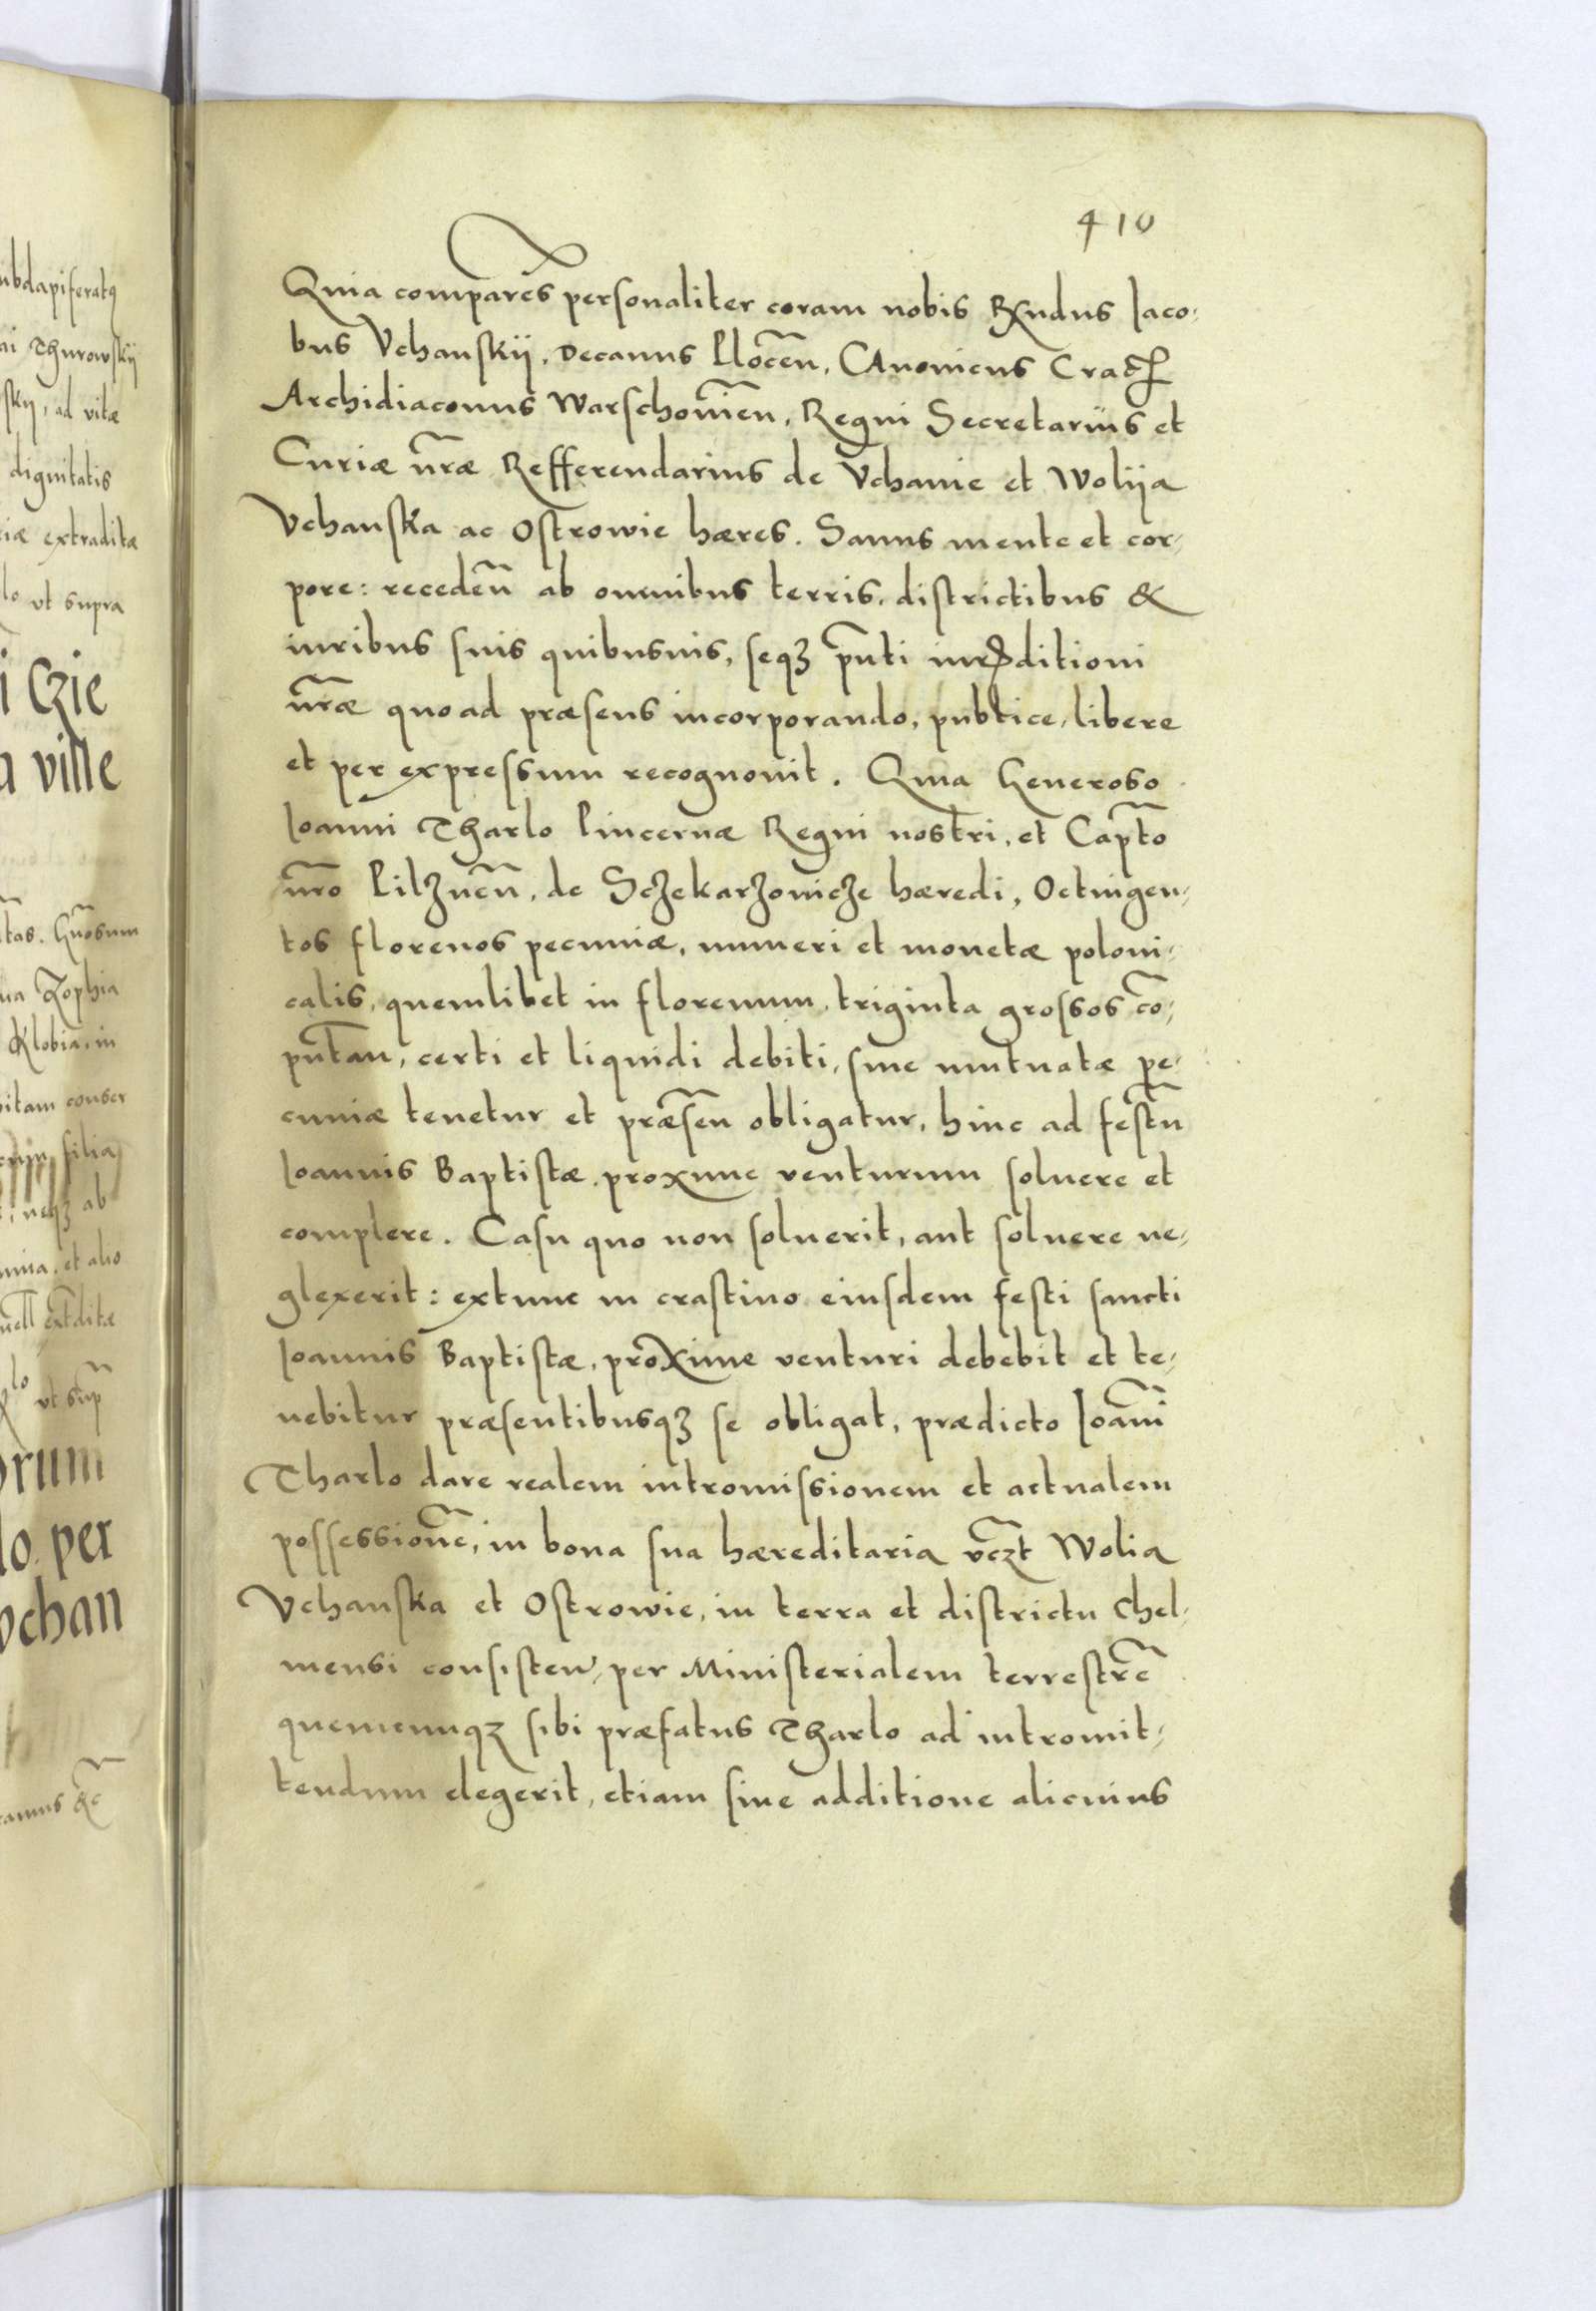 410
Quia comparēs personaliter coram nobis Rx̄ndus Iaco-
bus Vchanskij, Decanus Plocēn, Canonicus Crac̄
Archidiaconus Warschouiēn, Regni Secretarius et
Curiæ nr̄æ Refferendarius de Vchanie et Wolija
Vchanska ac Ostrowie hæres. Sanus mente et cor-
pore: recedēn ab omnibus terris, districtibus &
iuribus suis quibusuis, seqȝ pn̄ti iurꝫditioni
nr̄æ quo ad præsens incorporando, publice, libere
et per expressum recognouit. Quia Generoso
Ioanni Tharlo Pincernæ Regni nostri, et Capt̄o
nr̄o Pilznēn, de Sczekarzouicze hæredi, Octingen-
tos florenos pecuniæ, numeri et monetæ poloni-
calis, quemlibet in florenum, triginta grossos cō-
putan̄, certi et liquidi debiti, siue mutuatæ pe-
cuniæ tenetur et præsēn obligatur, hinc ad festū
Ioannis Baptistæ proxime venturum soluere et
complere. Casu quo non soluerit, aut soluere ne-
glexerit: extunc in crastino eiusdem festi sancti
Ioannis Baptistæ, proxime venturi debebit et te-
nebitur præsentibusqȝ se obligat, prædicto Ioāni
Tharlo dare realem intromissionem et actualem
possessionē, in bona sua hæreditaria vczt̄ Wolia
Vchanska et Ostrowie, in terra et districtu Chel-
mensi consisten̄, per Ministerialem terrestrē
quemcunqȝ sibi præfatus Tharlo ad intromit-
tendum elegerit, etiam siue additione alicuius